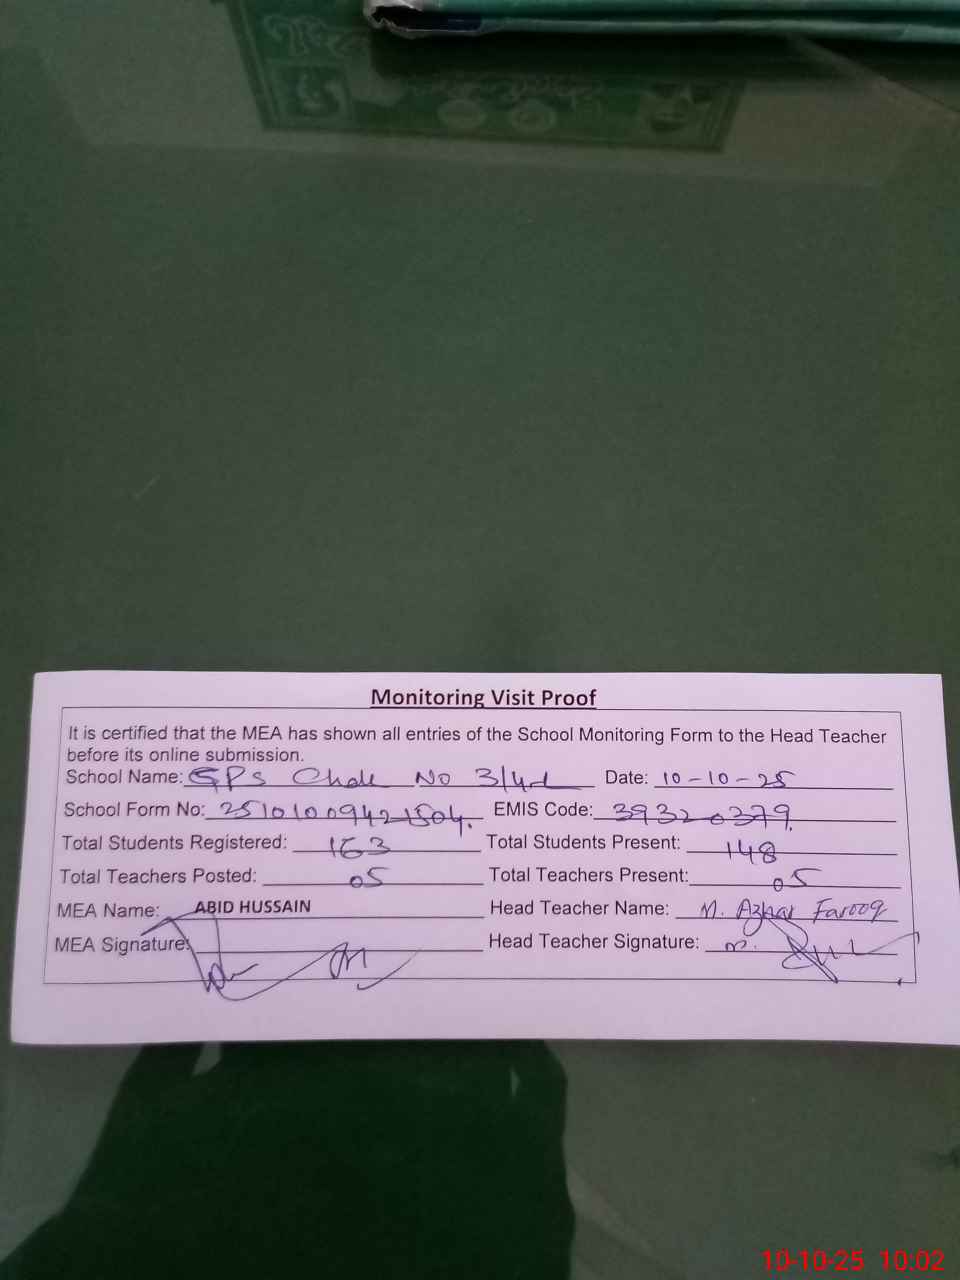 Monitoring Visit Proof
It is certified that the MEA has shown all entries of the School Monitoring Form to the Head Teacher
before its online submission.
School Name: GPS Chak No 3/4-L Date: 10-10-25
School Form No: 25101009421504. EMIS Code: 39320379.
Total Students Registered: 163 Total Students Present: 148
Total Teachers Posted: 05 Total Teachers Present: 05
MEA Name: ABID HUSSAIN Head Teacher Name: M. Azhar Farooq
MEA Signature: Head Teacher Signature: m.
10-10-25 10:02